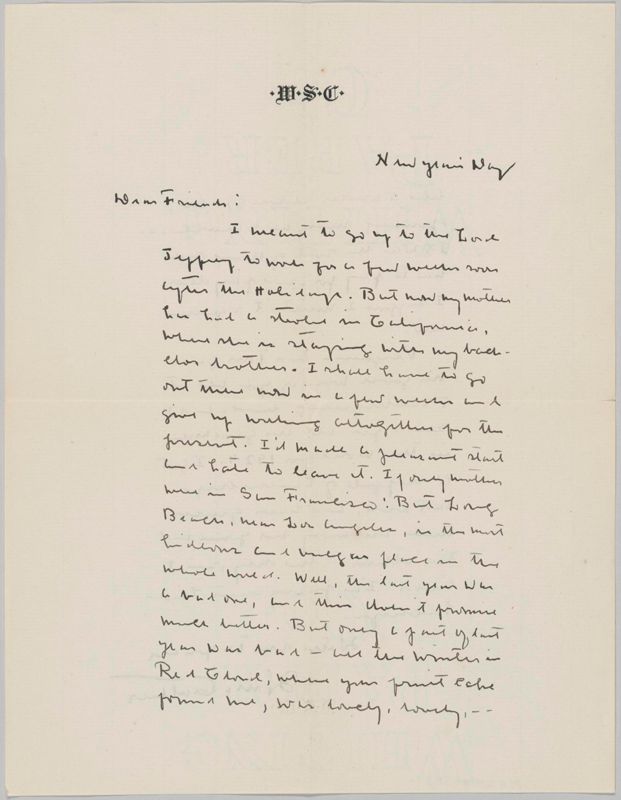 ·W·S·C·
New Year's Day
Dear Friends:
I meant to go up to the Lord
Jeffrey to work for a few weeks soon
after the Holidays. But now my mother
has had a stroke in California,
where she is staying with my bach-
elor brother. I shall have to go
out there now in a few weeks and
give up working altogether for the
present. I'd made a pleasant start
and hate to leave it. If only mother
were in San Francisco! But Long
Beach, near Los Angeles, is the most
hideous and vulgar place in the
whole world. Well, the last year was
a bad one, and this doesn't promise
much better. But only a part of last
year was bad — all the winter in
Red Cloud, where your fruit cake
found me, was lovely, lovely, --